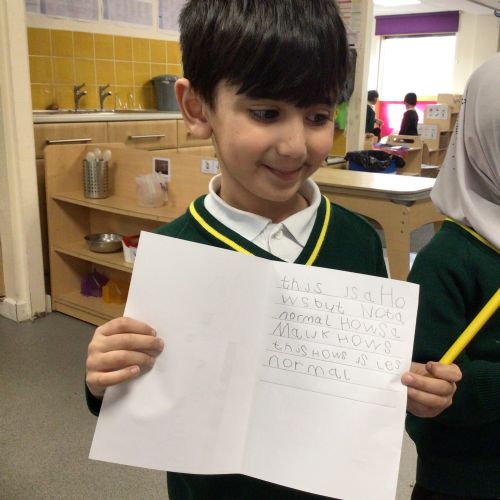 this is a Ho
ws but Not a
normal HOWS a
Mawk HOWS
this HOWS is les
normal